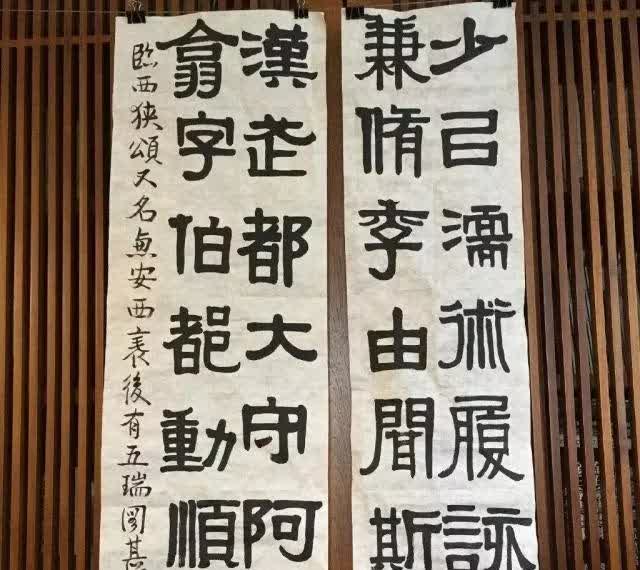 少㠯濡術履
兼脩季由聞斯
漢武都大守阿
翕字伯都動順
臨西狹頌又名惠安西表後有五瑞圖其